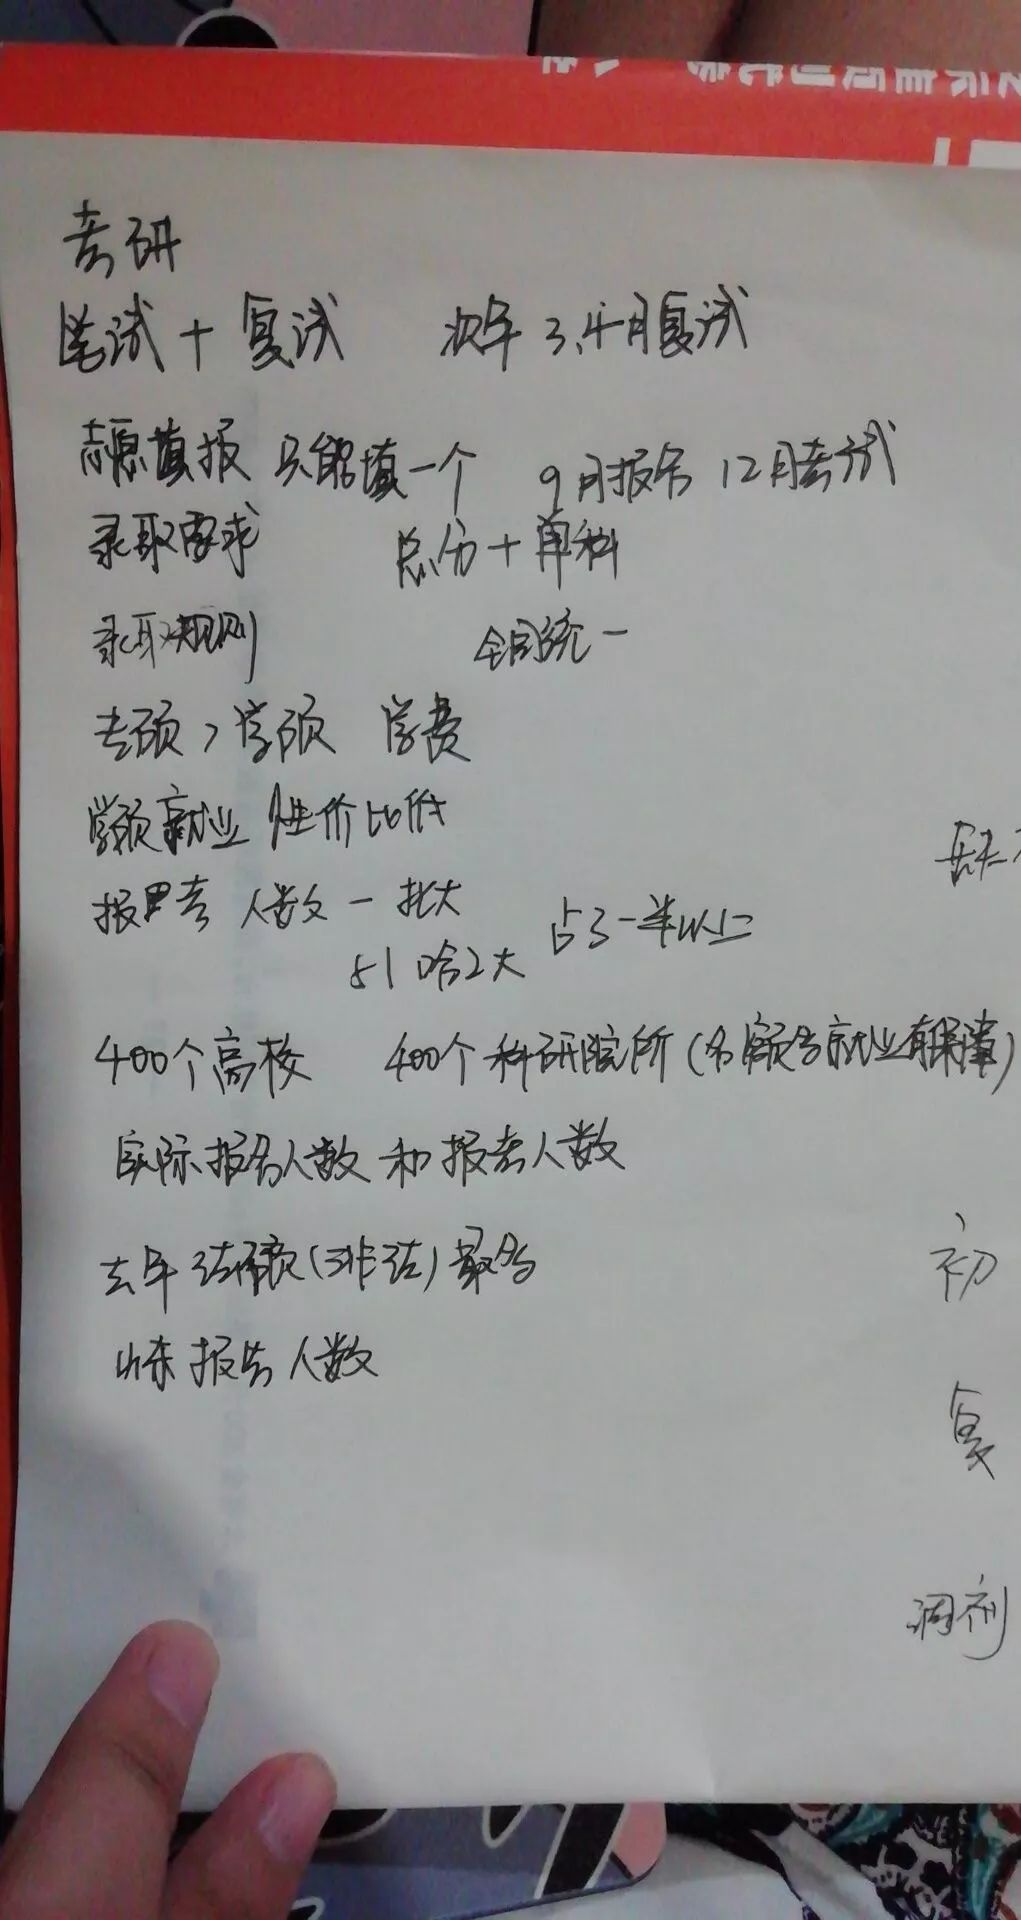 考研
笔试 + 复试 次年 3.4月复试
志愿填报 只能填一个 9月报名 12月考试
录取要求 总分 + 单科
录取规则 全国统一
专硕 > 学硕 学费
学硕就业 性价比低
报考 人数一批大
占了一半以上
400个高校 400个科研院所 (就业有保障)
实际报名人数和报考人数
去年 (非法) 最多
山东报名人数
初
复
调剂